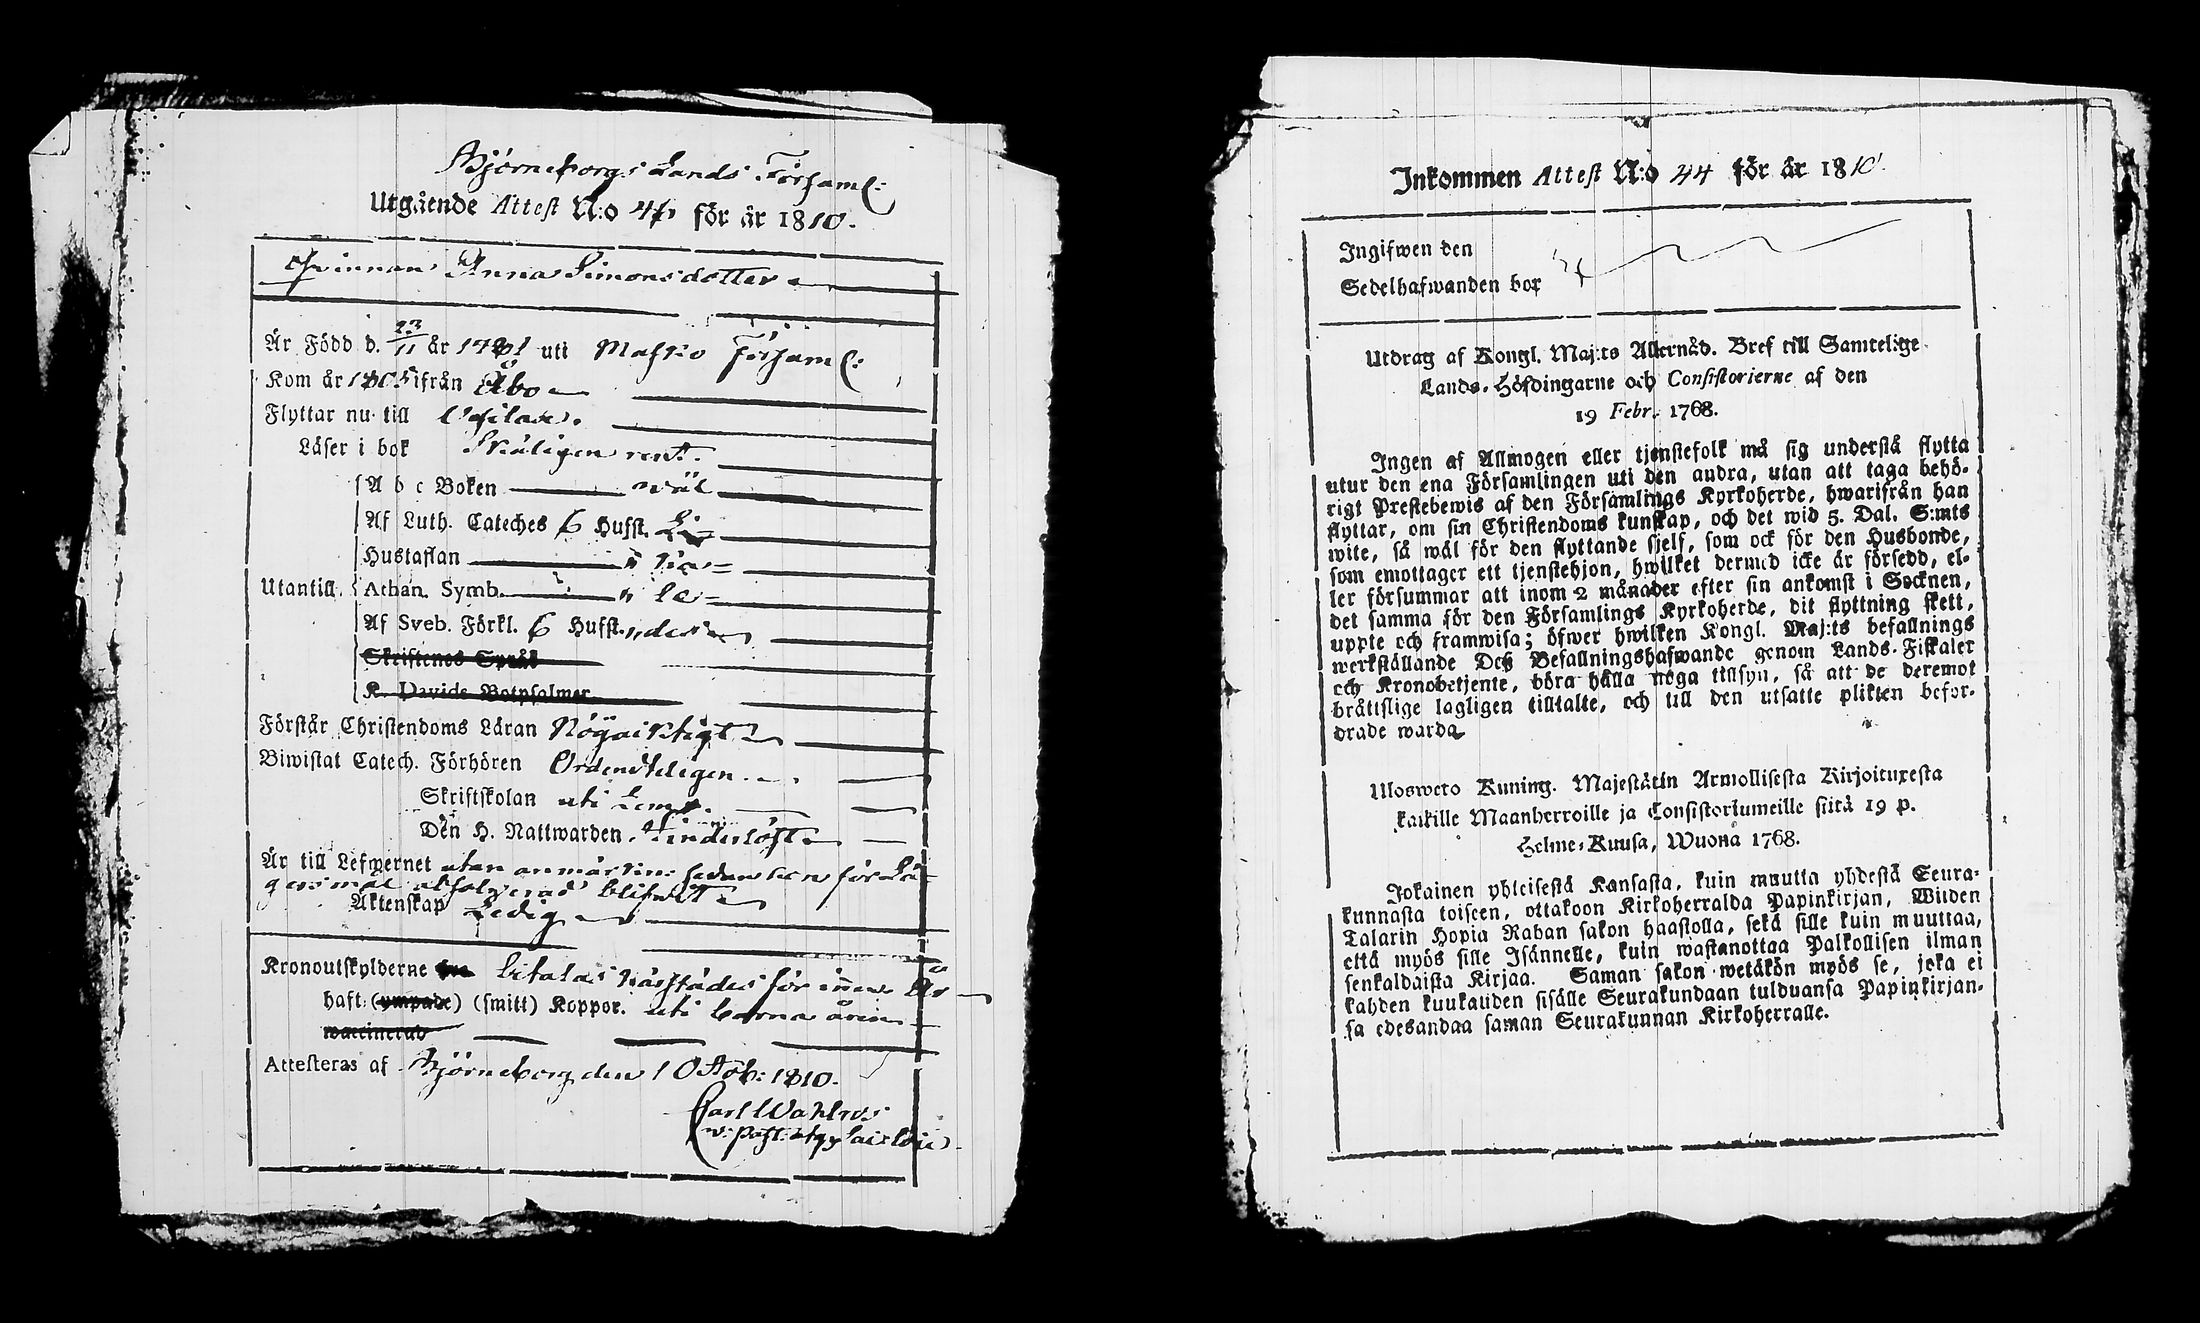 Björneborgs Lands Församl:
Utgående Attest N:o 46 för är 1810.
Qvinnan Anna Simonsdotter
Är Född d. 23/11 år 1781 uti Masko Församl:
Kom år 1805 ifrån Åbo
Flyttar nu till Ufsila
Läser i bok Skäligen rent.
A b c Boken wäl
Af Luth. Cateches 6 Hufst.
Hustaflan
Utantill. Athan. Symb.
Af Sveb. Förkl. 6 Hufst.
Skriftenes Språk
K. Davids Botpsalmer
Förstår Christendoms Läran Nögaktigt
Biwistat Catech. Förhören Ordenteligen
Skriftskolan uti
Den H. Nattwarden
Är till Lefwernet utan anmärkn: sedan hon för Lä-
gersmål absolverad blifwit
Äktenskap Ledig
Kronoutskylderne betalas härstädes för inew. År
haft: (ympade) (smitt) Koppor. uti barna åren
waccinerad
Attesteras af Björneborg den 1 Octob: 1810.
Carl Wahlroos
Inkommen Attest N:o 44 för är 1810
Ingifwen den
Sedelhafwanden bor
Utdrag af Kongl. Maj:ts Allernåd. Bref till Samtelige
Lands-Höfdingarne och Consistorierne af den
19 Febr. 1768.
Ingen af Allmogen eller tjenstefolk må sig understå flytta
utur den ena Församlingen uti den audra, utan att taga behö-
rigt Prestebewis af den Församlings Kyrkoherde, hwarifrån han
flyttar, om sin Christendoms kunskap, och det wid 5. Dal. S:mts
wite, så wäl för den flyttande sjelf, som ock för den Husbonde,
som emottager ett tjenstehjon, hwilket dermed icke är försedd, el-
ler försummar att inom 2 månader efter sin ankomst i Socknen,
det samma för den Församlings Kyrkoherde, dit flyttning skett,
uppte och framwisa; öfwer hwilken Kongl. Maj:ts befallnings
werkställande Deß Befallningshafwande genom Lands-Fiskaler
och Kronobetjente, böra hålla noga tillsyn, så att de deremot
bråttslige lagligen tilltalte, och till den utsatte plikten befor-
drade warda
Uloswero Kuning. Majestätin Armollisesta Kirjoituxesta
kaikille Maanherroille ja Consistoriumeille siitä 19 p.
Helme-Kuusa, Wuonna 1768.
Jokainen yhteisestä Kansasta, kuin muutta yhdestä Seura-
kunnasta toiseen, ottakoon Kirkoherralda Papinkirjan, Wiiden
Talarin Hopia Rahan sakon haastolla, sekä sille kuin muuttaa,
että myös sille Isännelle, kuin wastanottaa Palkollisen ilman
senkaldaista Kirjaa. Saman sakon wetäkön myös se, joka ei
kahden kuukauden sisälle Seurakundaan tulduansa Papinkirjan-
sa edesandaa saman Seurakunnan Kirkoherralle.